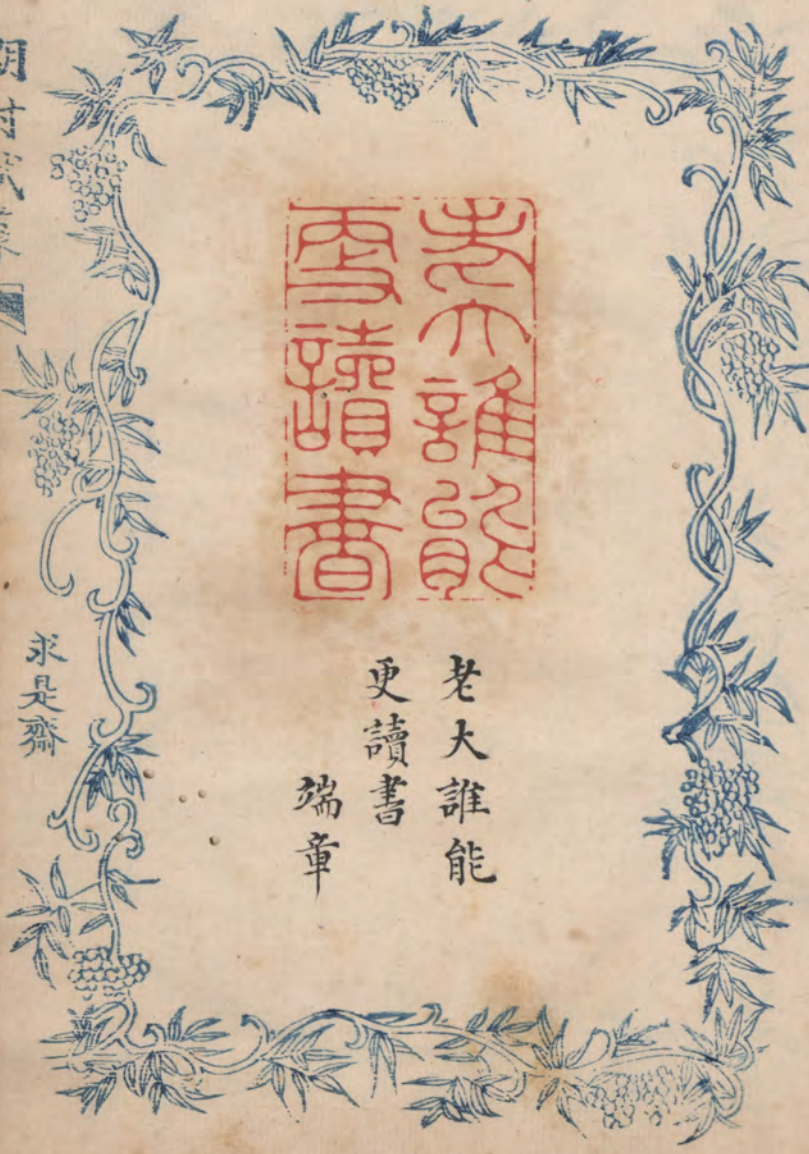 老大誰能
更讀書
老大誰能
更讀書
端章
求是齋